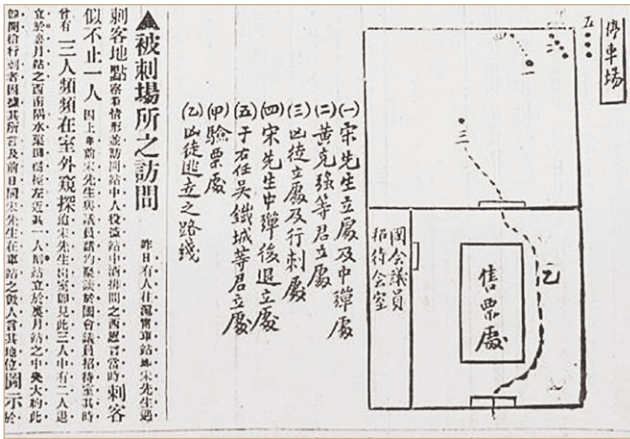 停車場
五
一
三
乙
售票處
國会議員
招待会室
(一)宋先生立處及中彈處
(二)黃克強等君立處
(三)凶徒立處及行刺處
(四)宋先生中彈後退立處
(五)于右任吳鐵城等君立處
(甲)驗票處
(乙)凶徒逃立之路綫
▲被刺場所之訪問 昨日有人往滬寧車站地宋先生遇
刺客地點察看情形並訪問站中人役站中酒排間之西言當時刺客
似不止一人 因上車前宋先生與議員諸聚談於國會議員招待室其時
曾有三人頻頻在室外窺探宋先生出室即見此三人中有二人退
立於裏月站之西南隅一人站立於裏月站之中央大約此
即開槍行刺者因其所言及前日同宋先生在車站之數人言其地位圖示於